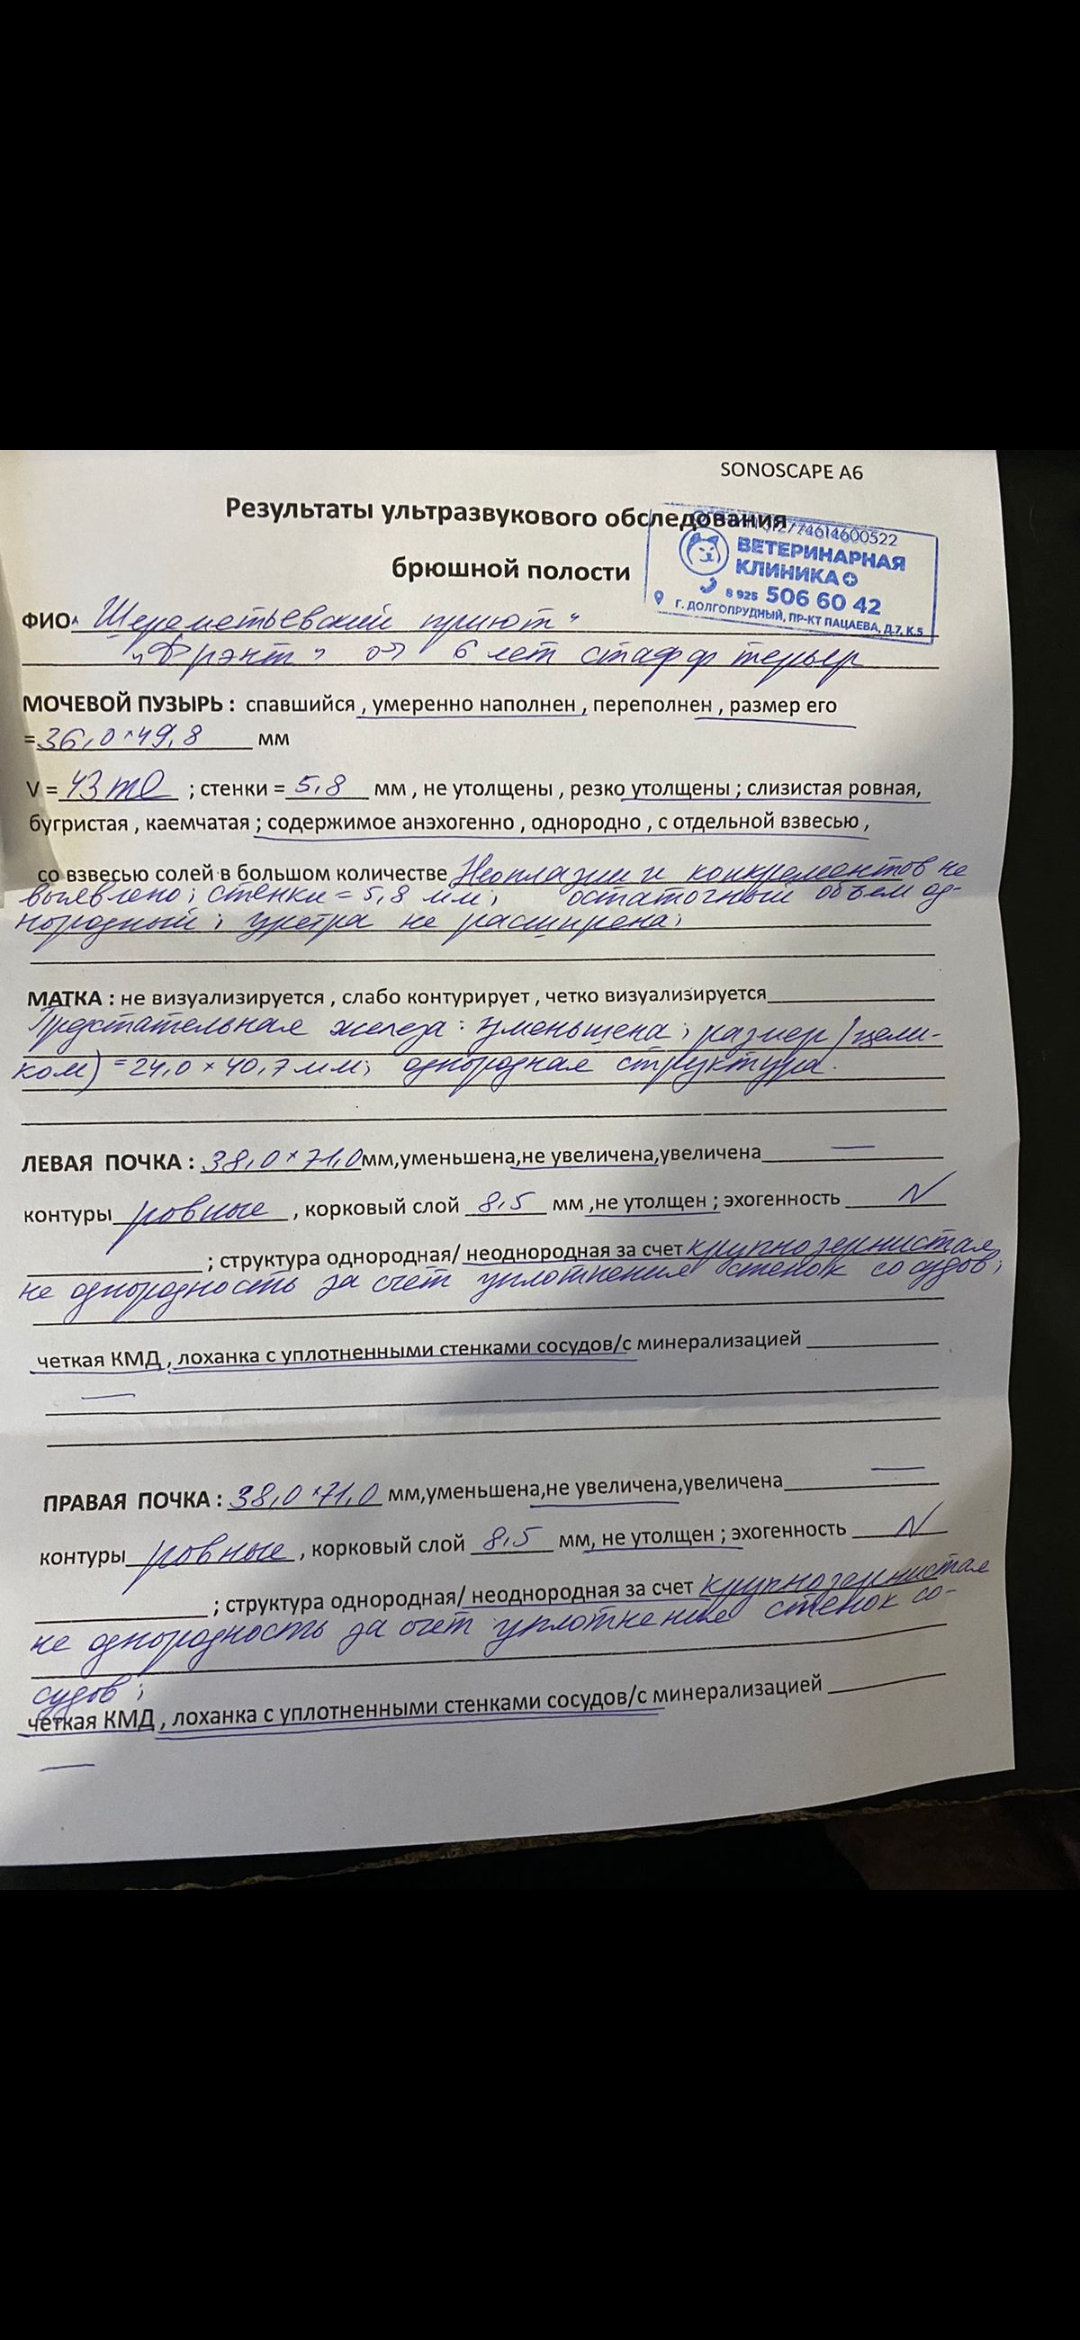 SONOSCAPE A6
Результаты ультразвукового обследования
брюшной полости
2774614600522
ВЕТЕРИНАРНАЯ
КЛИНИКА
8 925 506 60 42
Г. ДОЛГОПРУДНЫЙ, ПР-КТ ПАЦАЕВА, Д.7, К.5
ФИО Шереметьевский приют"
"Фрэнт" 6 лет стафф терьер
МОЧЕВОЙ ПУЗЫРЬ : спавшийся , умеренно наполнен , переполнен , размер его
= 36,0×49,8 мм
V = 43 ml ; стенки = 5,8 мм , не утолщены , резко утолщены ; слизистая ровная,
бугристая , каемчатая ; содержимое анэхогенно , однородно , с отдельной взвесью ,
со взвесью солей в большом количестве Неоплазии и конкрементов не
выявлено; стенки = 5,8 мм; остаточный объем од-
нородный; уретра не расширена;
МАТКА : не визуализируется , слабо контурирует , четко визуализируется
Предстательная железа: уменьшена; размер (цели-
ком) = 24,0 × 40,7 мм; однородная структура.
ЛЕВАЯ ПОЧКА : 38,0×71,0 мм,уменьшена,не увеличена,увеличена —
контуры ровные , корковый слой 8,5 мм ,не утолщен ; эхогенность N
; структура однородная/ неоднородная за счет крупнозернистая
не однородность за счет уплотнения стенок сосудов;
четкая КМД , лоханка с уплотненными стенками сосудов/с минерализацией
—
ПРАВАЯ ПОЧКА : 38,0×71,0 мм,уменьшена,не увеличена,увеличена —
контуры ровные , корковый слой 8,5 мм, не утолщен ; эхогенность N
; структура однородная/ неоднородная за счет крупнозернистая
не однородность за счет уплотнение стенок со-
судов;
четкая КМД , лоханка с уплотненными стенками сосудов/с минерализацией
—